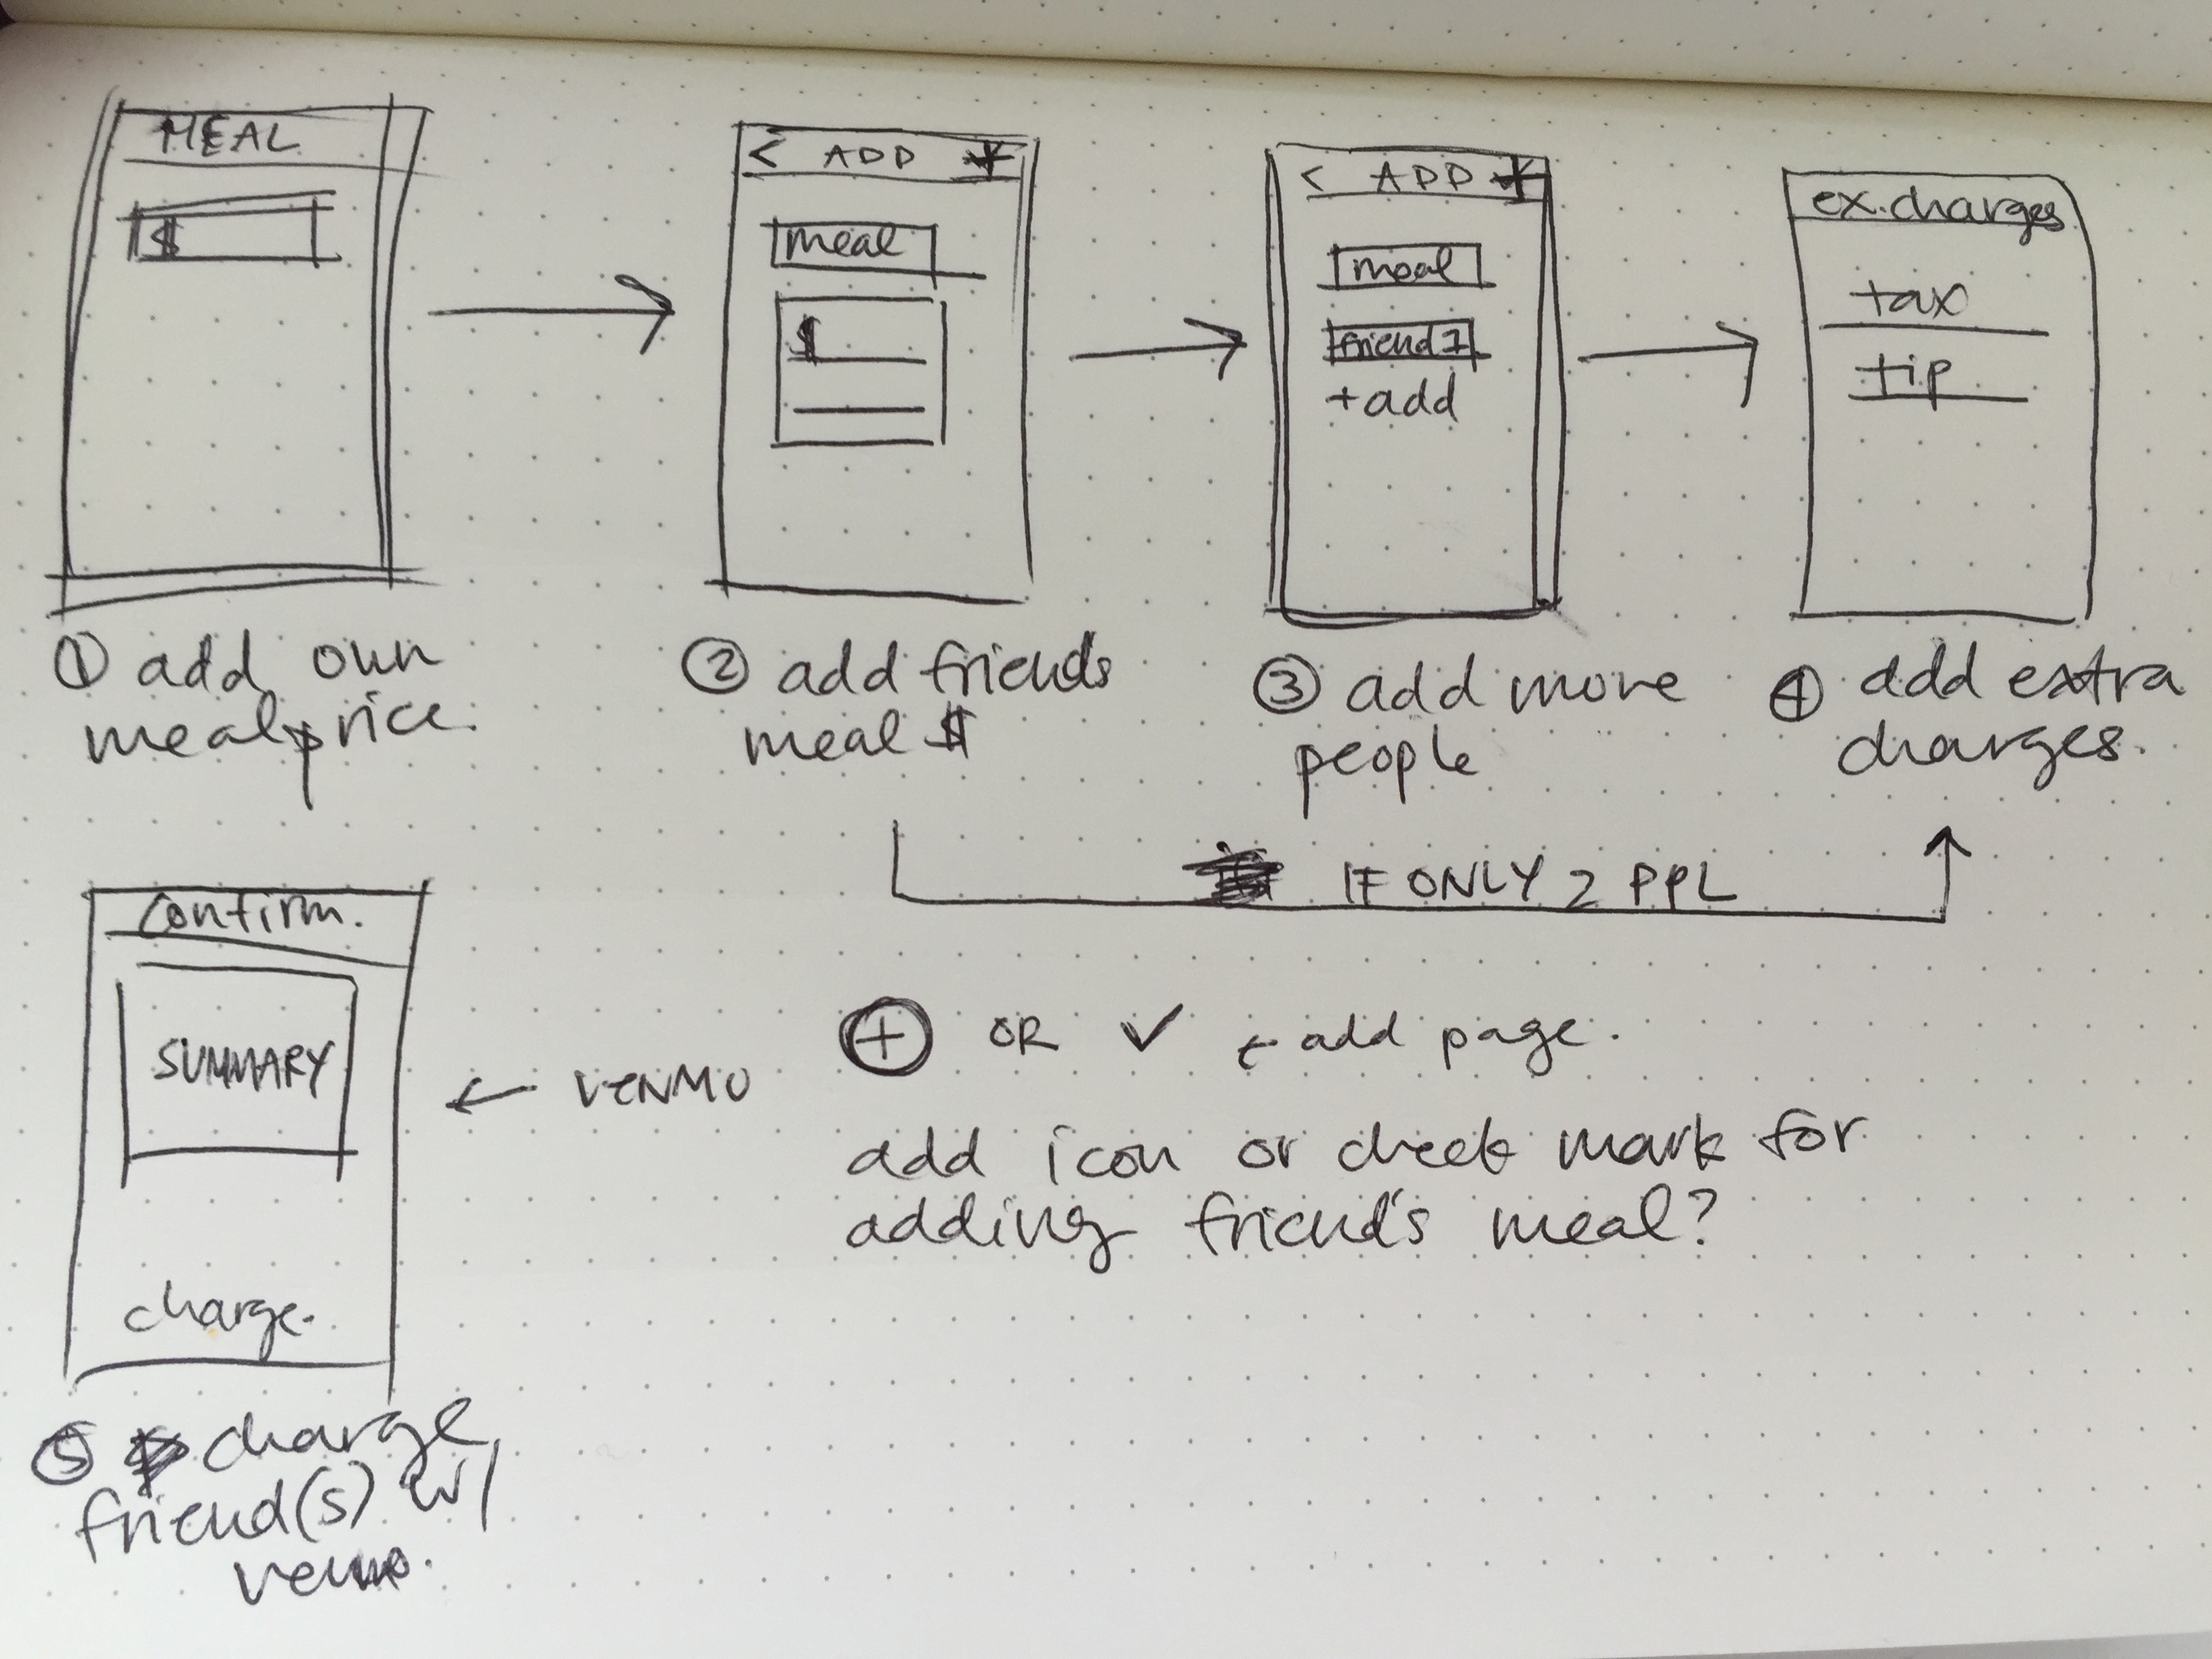 MEAL
$
① add own
meal price.
< ADD +
meal
$
② add friends
meal $
< ADD +
meal
friend 1
+add
③ add more
people
ex. charges
tax
tip
④ add extra
charges.
IF ONLY 2 PPL
confirm.
SUMMARY
charge.
← VENMO
⑤ charge
friend(s) w/
venmo.
⊕ OR ✓ ← add page.
add icon or check mark for
adding friend's meal?